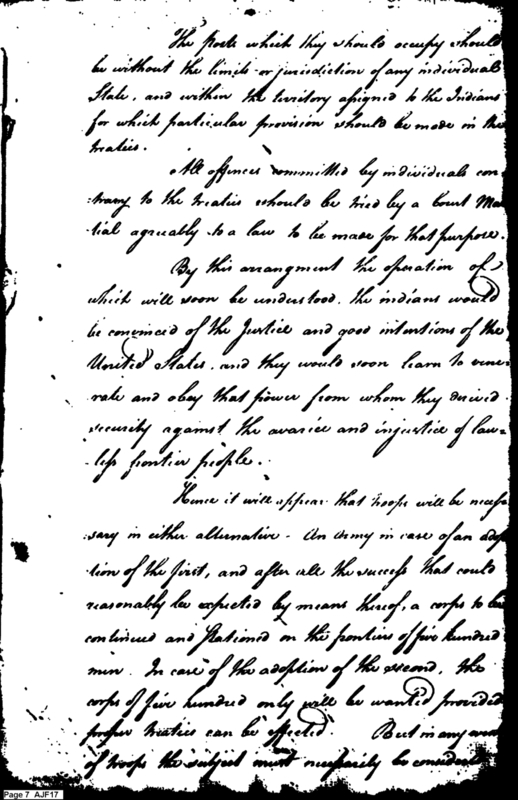 The posts which they should occupy should
be without the limits or jurisdiction of any individual
State, and within the territory assigned to the Indians
for which particular provision should be made in the
treaties.
All offences committed by individuals con-
trary to the treaties should be tried by a Court Mar
tial agreably to a law to be made for that purpose.
By this arrangment the operation of
which will soon be understood, the indians would
be convinced of the Justice and good intentions of the
United States, and they would soon learn to vene-
rate and obey that power from whom they derived
security against the avarice and injustice of law=
less frontier people.
Hence it will appear that troops will be necess
sary in either alternative - An army in case of an adop
tion of the first, and after all the success that could
reasonably be expected by means thereof, a corps to be
continued and stationed on the frontiers of five hundred
men. In case of the adoption of the second, the
corps of five hundred only will be wanted provided
proper treaties can be effected. But in any
of troops the subject must necessarily be considered
Page 7 AJF17